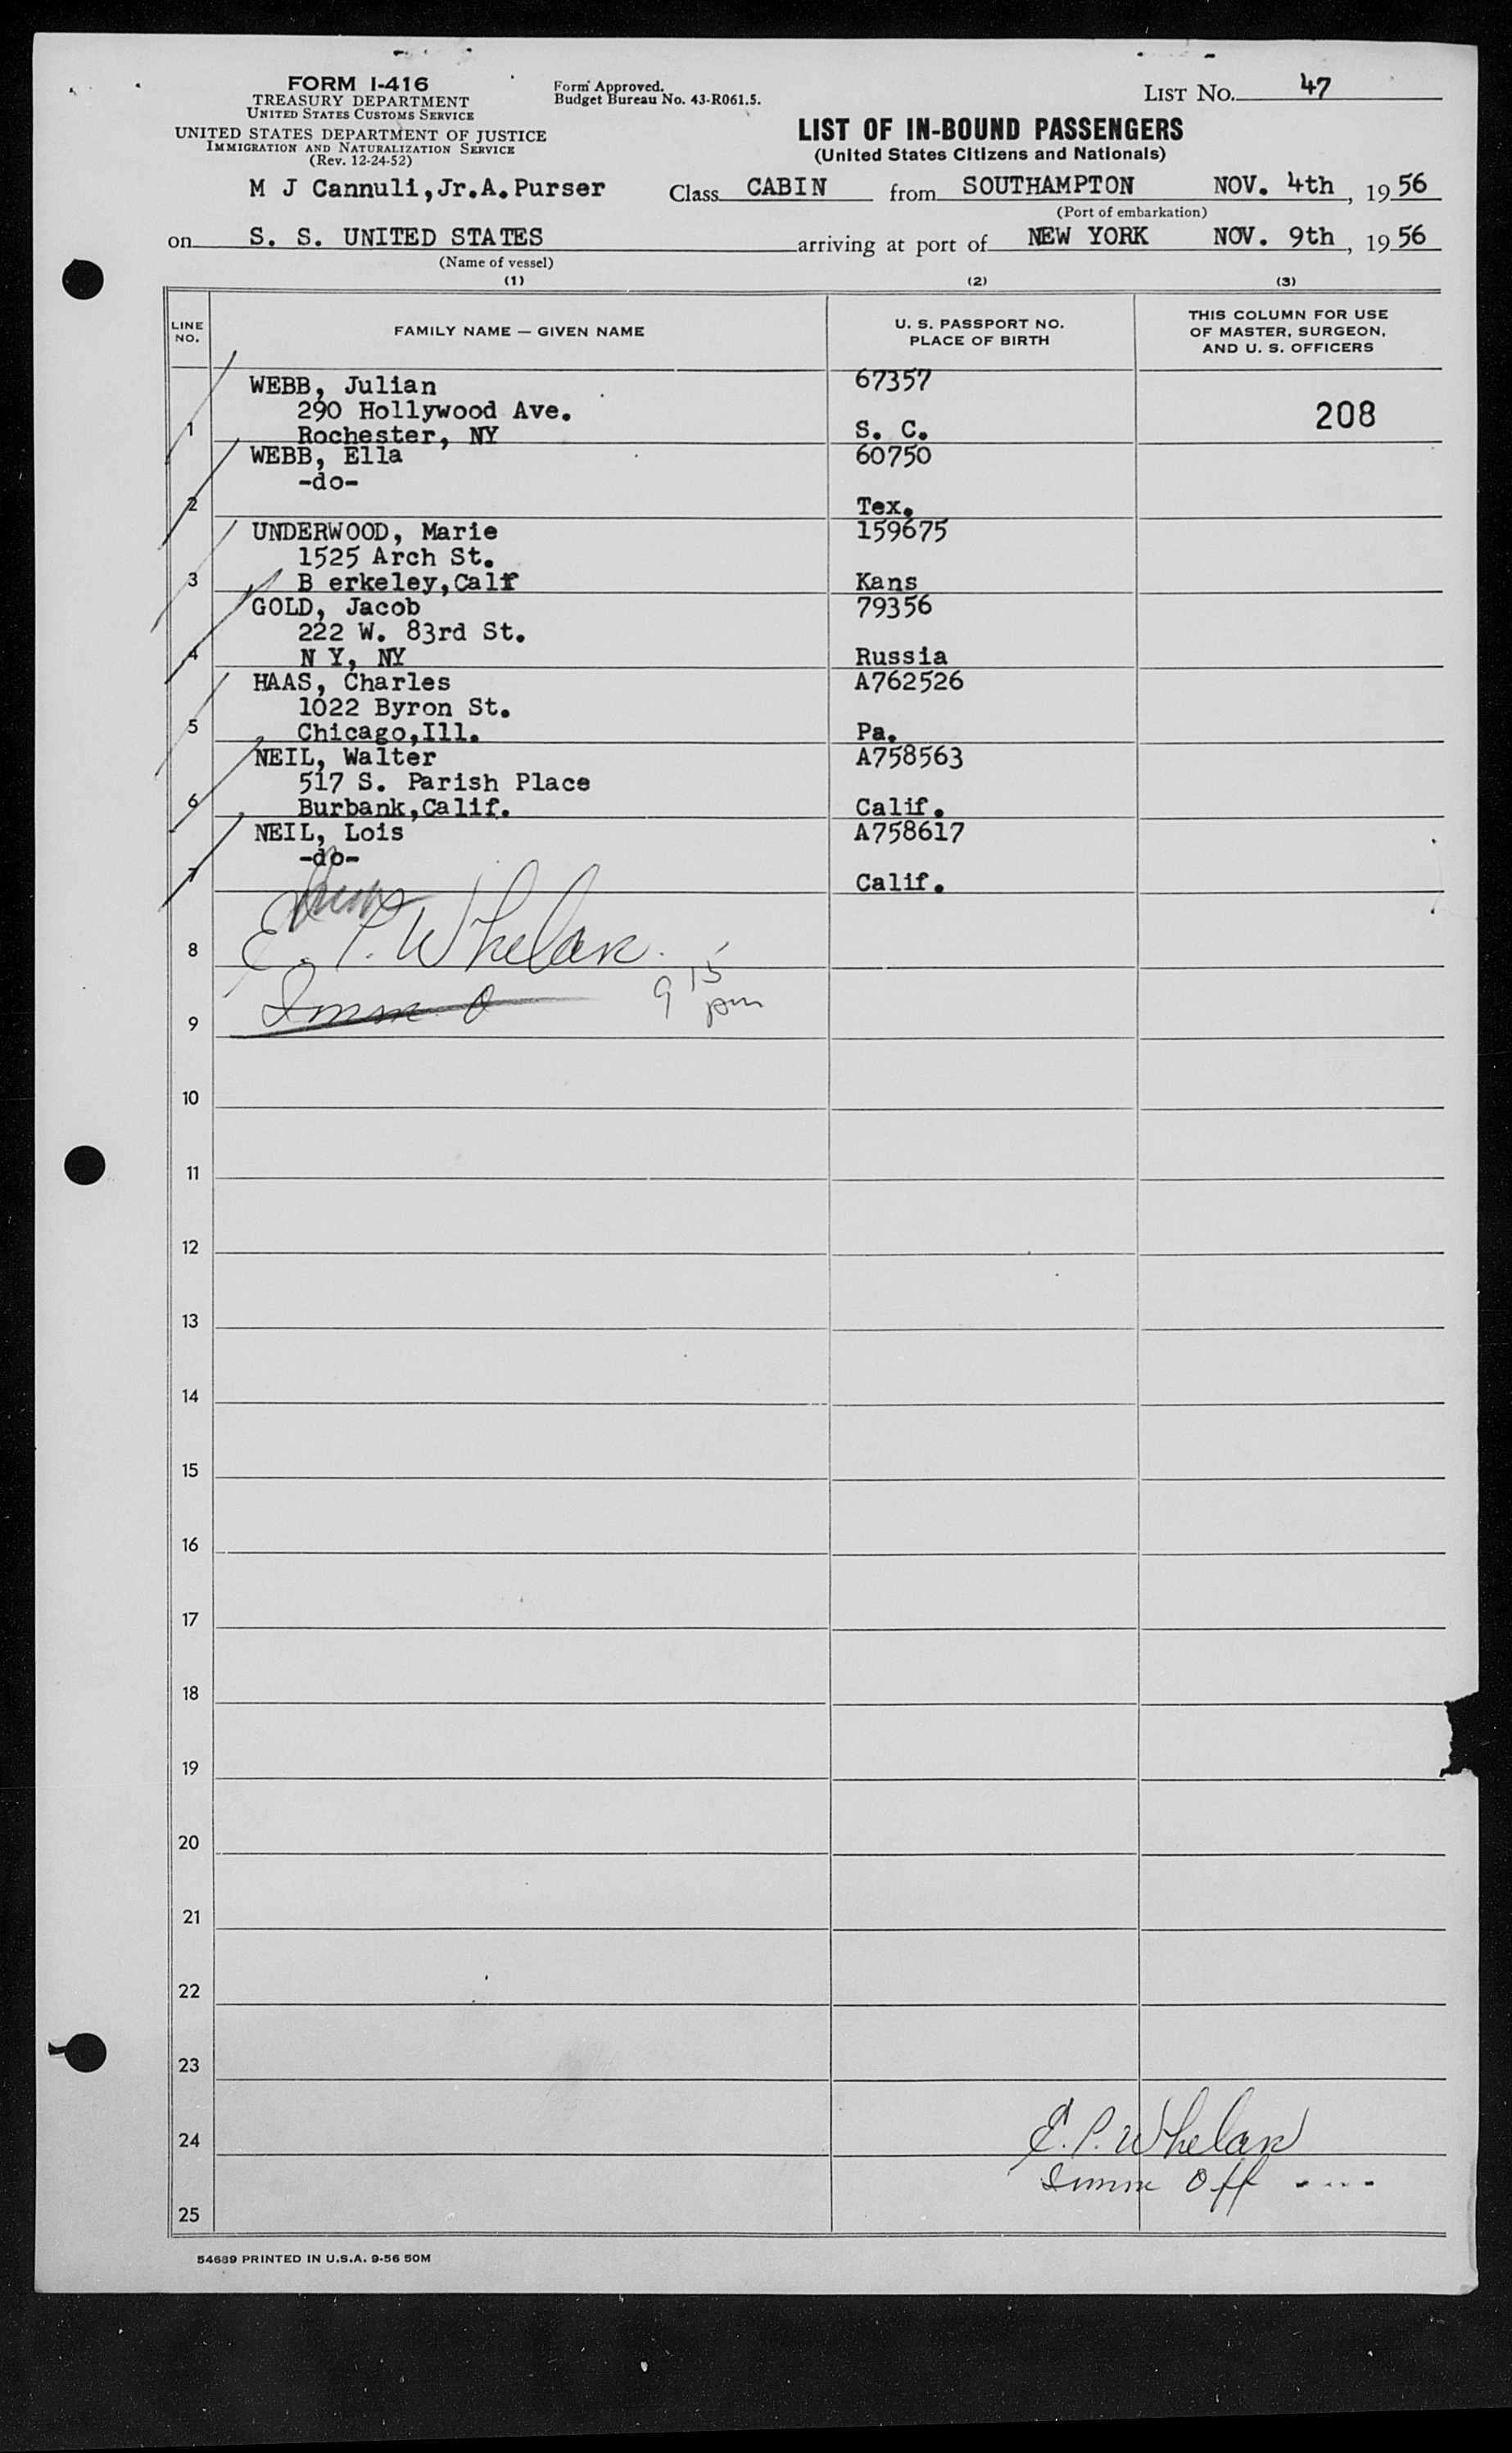 FORM I-416
TREASURY DEPARTMENT
UNITED STATES CUSTOMS SERVICE
UNITED STATES DEPARTMENT OF JUSTICE
IMMIGRATION AND NATURALIZATION SERVICE
(Rev. 12-24-52)
Form Approved.
Budget Bureau No. 43-R061.5.
LIST NO. 47
LIST OF IN-BOUND PASSENGERS
(United States Citizens and Nationals)
M J Cannuli,Jr.A.Purser Class CABIN from SOUTHAMPTON NOV. 4th, 1956
(Port of embarkation)
on S. S. UNITED STATES arriving at port of NEW YORK NOV. 9th, 1956
(Name of vessel)
(1) (2) (3)
LINE NO. FAMILY NAME — GIVEN NAME U. S. PASSPORT NO. PLACE OF BIRTH THIS COLUMN FOR USE OF MASTER, SURGEON, AND U. S. OFFICERS
WEBB, Julian 67357
290 Hollywood Ave. 208
1 Rochester, NY S. C.
WEBB, Ella 60750
-do-
2 Tex.
UNDERWOOD, Marie 159675
1525 Arch St.
3 B erkeley,Calf Kans
GOLD, Jacob 79356
222 W. 83rd St.
4 N Y, NY Russia
HAAS, Charles A762526
1022 Byron St.
5 Chicago,Ill. Pa.
NEIL, Walter A758563
517 S. Parish Place
6 Burbank,Calif. Calif.
NEIL, Lois A758617
-do-
7 Calif.
8 E. P. Whelan
9 Imm O 9 15 pm
10
11
12
13
14
15
16
17
18
19
20
21
22
23
24 E. P. Whelan
Imm Off
25
54689 PRINTED IN U.S.A. 9-56 50M